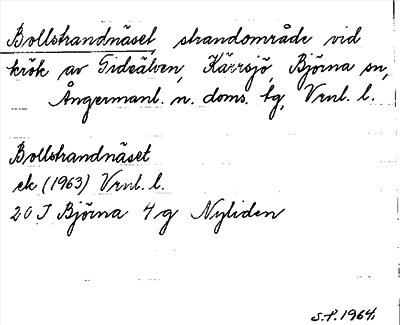 Bollstrandnäset, strandområde vid
krök av Gideälven, Kärrsjö, Björna sn,
Ångermanl. n. doms. tg, Vrnl. l.
Bollstrandnäset
ek (1963) Vrnl. l.
20 I Björna 4 g Nyliden
S.F. 1964.